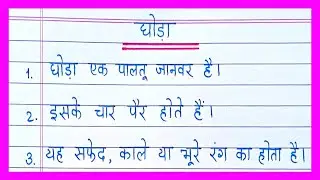 घोड़ा
1. घोड़ा एक पालतू जानवर है।
2. इसके चार पैर होते हैं।
3. यह सफेद, काले या भूरे रंग का होता है।